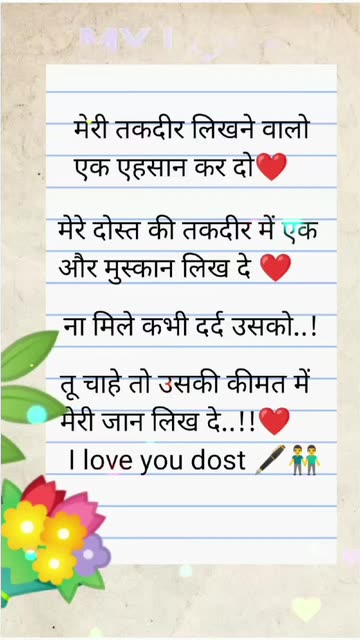 मेरी तकदीर लिखने वालो
एक एहसान कर दो❤️
मेरे दोस्त की तकदीर में एक
और मुस्कान लिख दे ❤️
ना मिले कभी दर्द उसको..!
तू चाहे तो उसकी कीमत में
मेरी जान लिख दे..!!❤️
I love you dost 🖋️👬